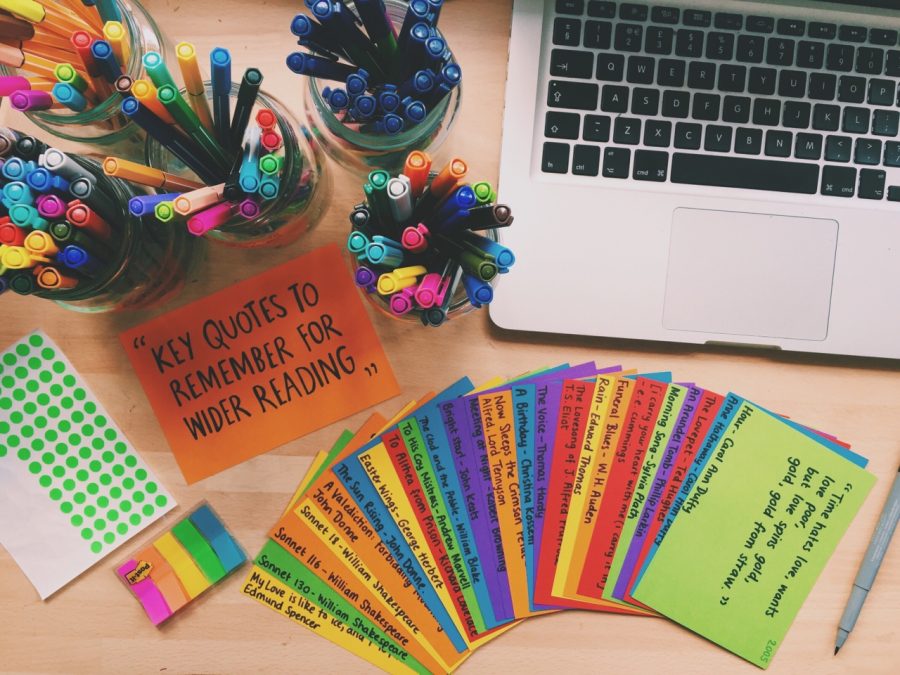 Q W E R T Y U I O P
A S D F G H J K L
Z X C V B N M
fn ctrl alt cmd cmd alt
“KEY QUOTES TO
REMEMBER FOR
WIDER READING„
Post-it
My Love is like to ice, and I
Edmund Spencer
Sonnet 130 - William Shakespeare
Sonnet 116 - William Shakespeare
Sonnet 18 - William Shakespeare
A Valediction: Forbidding
John Donne
The Sun Rising - John Donne
Easter Wings - George Herbert
To Althea from Prison - Richard Lovelace
To His Coy Mistress - Andrew Marvell
The Clod and the Pebble - William Blake
Bright star! - John Keats
Meeting at Night - Robert Browning
Now Sleeps the Crimson Petal
Alfred, Lord Tennyson
A Birthday - Christina Rossetti
The Voice - Thomas Hardy
The Lovesong of J. Alfred
T.S. Eliot
Rain - Edward Thomas
Funeral Blues - W. H. Auden
[i carry your heart with me (i carry it in]
e.e. cummings
Morning Song - Sylvia Plath
An Arundel Tomb - Philip Larkin
The Lovepet - Ted Hughes
Anne Hathaway - Carol Ann Duffy
Hour, Carol Ann Duffy
“Time hates love, wants
love poor,
but love spins gold,
gold, gold from straw.„
2005